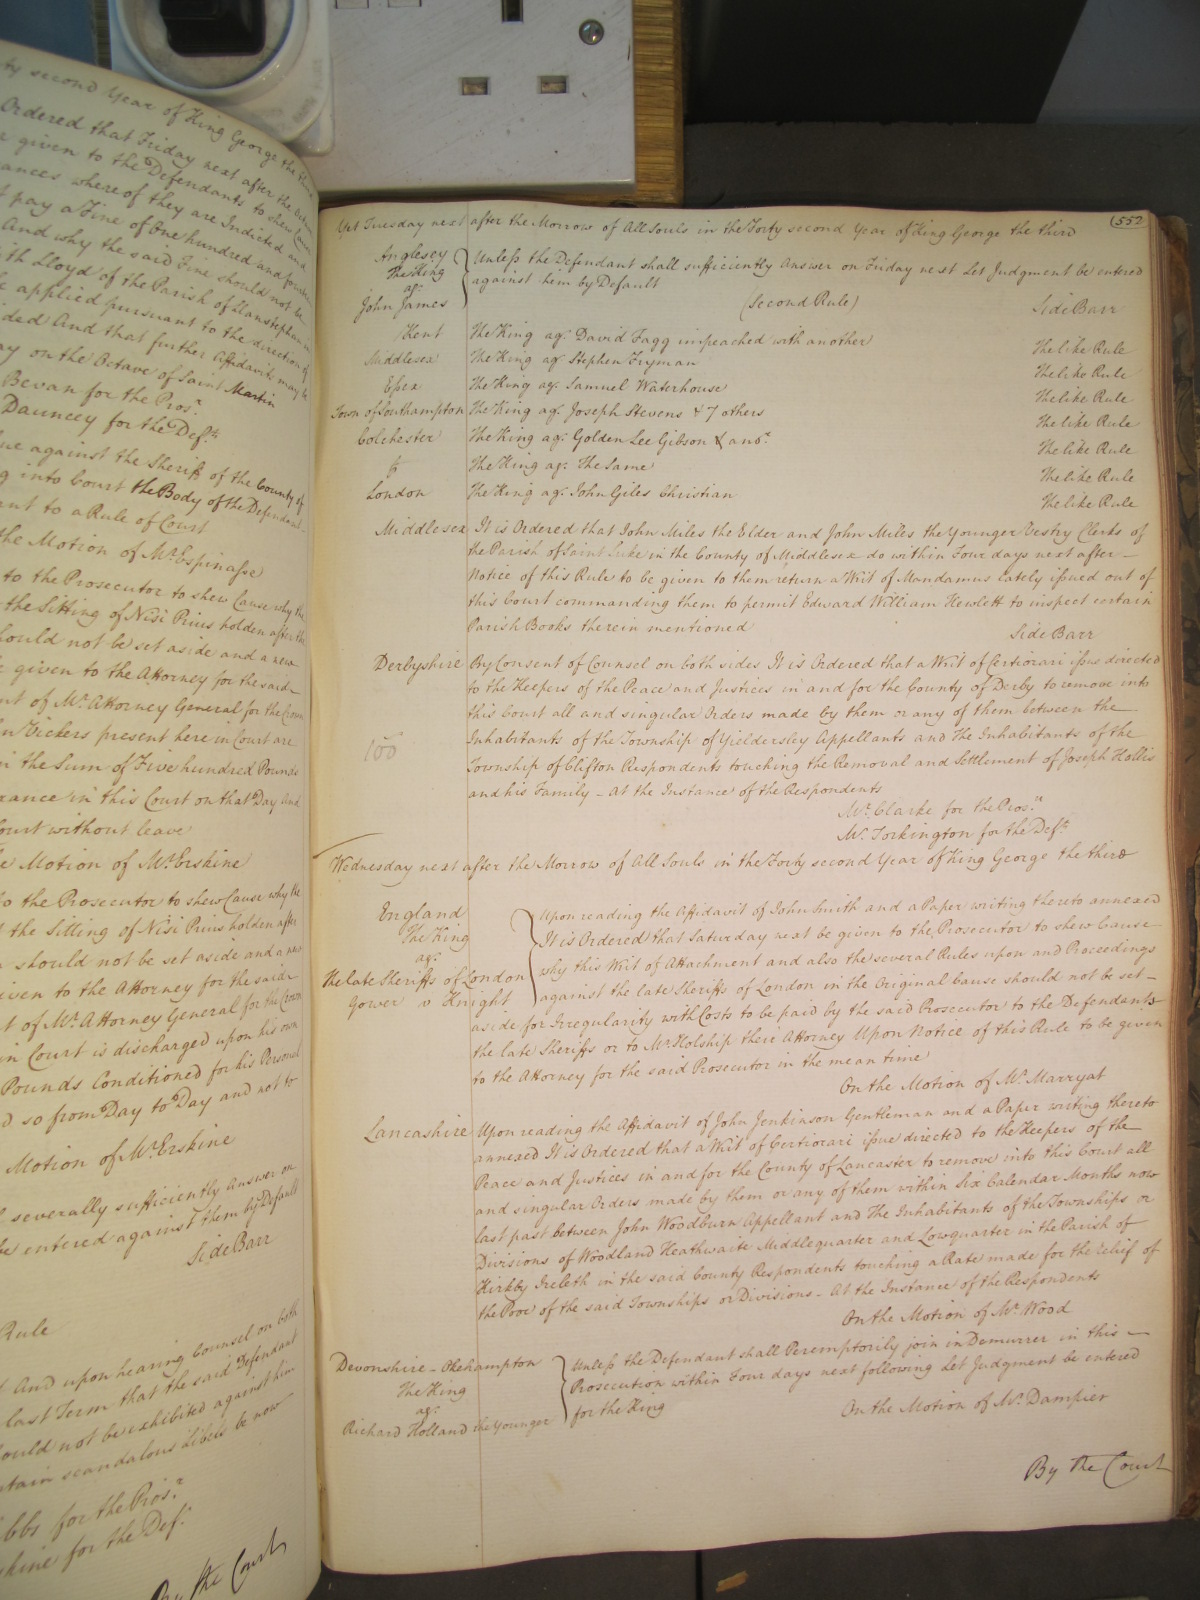 ty second Year of King George the third
Ordered that Friday next after the Octave
given to the Defendants to shew Cause
ances whereof they are Indicted and
pay a Fine of One hundred and fourteen
And why the said Fine should not be
ith Lloyd of the Parish of Llanstephan in
applied pursuant to the direction of
ded And that further Affidavits may be
ay on the Octave of Saint Martin
Bevan for the Pros.r
Dauncey for the Def.ts
ue against the Sheriff of the County of
g into Court the Body of the Defendant
ant to a Rule of Court
the Motion of Mr Espinasse
to the Prosecutor to shew Cause why the
the Sitting of Nisi Prius holden after the
hould not be set aside and a new
given to the Attorney for the said
nt of Mr Attorney General for the Crown
n Vickers present here in Court are
n the Sum of Five hundred Pounds
rance in this Court on that Day and
ourt without leave
e Motion of Mr Erskine
to the Prosecutor to shew Cause why the
the Sitting of Nisi Prius holden after
should not be set aside and a new
iven to the Attorney for the said
t of Mr Attorney General for the Crown
in Court is discharged upon his own
Pounds Conditioned for his Personal
d so from Day to Day and not to
Motion of Mr Erskine
severally sufficiently answer on
be entered against them by Default
Side Barr
Rule
And upon hearing Counsel on both
last Term that the said Defendant
ould not be exhibited against him
rtain scandalous Libels be now
ibbs for the Pros.r
skine for the Def.t
By the Court
552
Yet Tuesday next after the Morrow of All Souls in the Forty second Year of King George the third
Anglesey
The King
ag.t
John James
Unless the Defendant shall sufficiently answer on Friday next Let Judgment be entered
against him by Default
(Second Rule)
Side Barr
Kent The King ag.t David Fagg impeached with another The like Rule
Middlesex The King ag.t Stephen Fryman The like Rule
Essex The King ag.t Samuel Waterhouse The like Rule
Town of Southampton The King ag.t Joseph Stevens & 7 others The like Rule
Colchester The King ag.t Golden Lee Gibson & ano.r The like Rule
The King ag.t The Same The like Rule
London The King ag.t John Giles Christian The like Rule
Middlesex It is Ordered that John Miles the Elder and John Miles the Younger Vestry Clerks of
the Parish of Saint Luke in the County of Middlesex do within Four days next after
Notice of this Rule to be given to them return a Writ of Mandamus lately issued out of
this Court commanding them to permit Edward William Hewlett to inspect certain
Parish Books therein mentioned
Side Barr
Derbyshire By Consent of Counsel on both sides It is Ordered that a Writ of Certiorari issue directed
to the Keepers of the Peace and Justices in and for the County of Derby to remove into
this Court all and singular Orders made by them or any of them between the
Inhabitants of the Township of Yieldersley Appellants and The Inhabitants of the
Township of Clifton Respondents touching the Removal and Settlement of Joseph Hollis
and his Family - At the Instance of the Respondents
Mr. Clarke for the Pros.rs
Mr. Torkington for the Def.ts
Wednesday next after the Morrow of All Souls in the Forty second Year of King George the third
England
The King
ag.t
The late Sheriffs of London
Gower v Knight
Upon reading the Affidavit of John Smith and a Paper writing thereto annexed
It is Ordered that Saturday next be given to the Prosecutor to shew Cause
why this Writ of Attachment and also the several Rules upon and Proceedings
against the late Sheriffs of London in the Original Cause should not be set
aside for Irregularity with Costs to be paid by the said Prosecutor to the Defendants
the late Sheriffs or to Mr Holship their Attorney Upon Notice of this Rule to be given
to the Attorney for the said Prosecutor in the mean time
On the Motion of Mr Marryat
Lancashire Upon reading the Affidavit of John Jenkinson Gentleman and a Paper writing thereto
annexed It is Ordered that a Writ of Certiorari issue directed to the Keepers of the
Peace and Justices in and for the County of Lancaster to remove into this Court all
and singular Orders made by them or any of them within Six Calendar Months now
last past between John Woodburn Appellant and The Inhabitants of the Townships or
Divisions of Woodland Heathwaite Middlequarter and Lowquarter in the Parish of
Kirkby Ireleth in the said County Respondents touching a Rate made for the relief of
the Poor of the said Townships or Divisions - At the Instance of the Respondents
On the Motion of Mr Wood
Devonshire - Okehampton
The King
ag.t
Richard Holland the younger
Unless the Defendant shall Peremptorily join in Demurrer in this
Prosecution within Four days next following Let Judgment be entered
for the King
On the Motion of Mr Dampier
By the Court